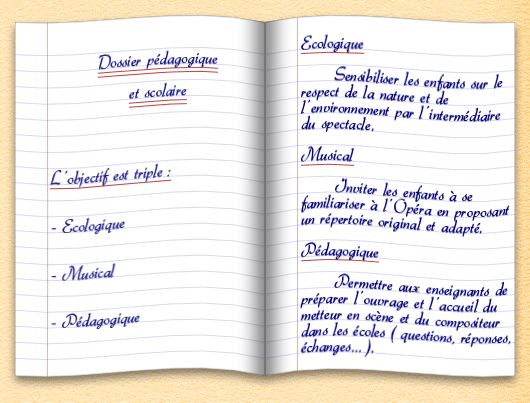 Dossier pédagogique
et scolaire
L'objectif est triple :
- Ecologique
- Musical
- Pédagogique
Ecologique
Sensibiliser les enfants sur le
respect de la nature et de
l'environnement par l'intermédiaire
du spectacle.
Musical
Inviter les enfants à se
familiariser à l'Opéra en proposant
un répertoire original et adapté.
Pédagogique
Permettre aux enseignants de
préparer l'ouvrage et l'accueil du
metteur en scène et du compositeur
dans les écoles ( questions, réponses,
échanges... ).